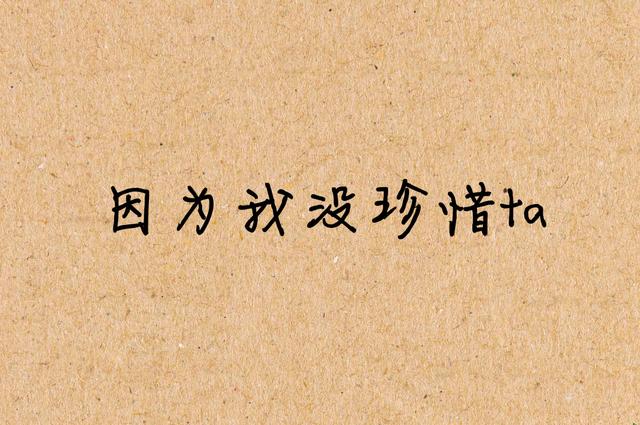 因为我没珍惜ta